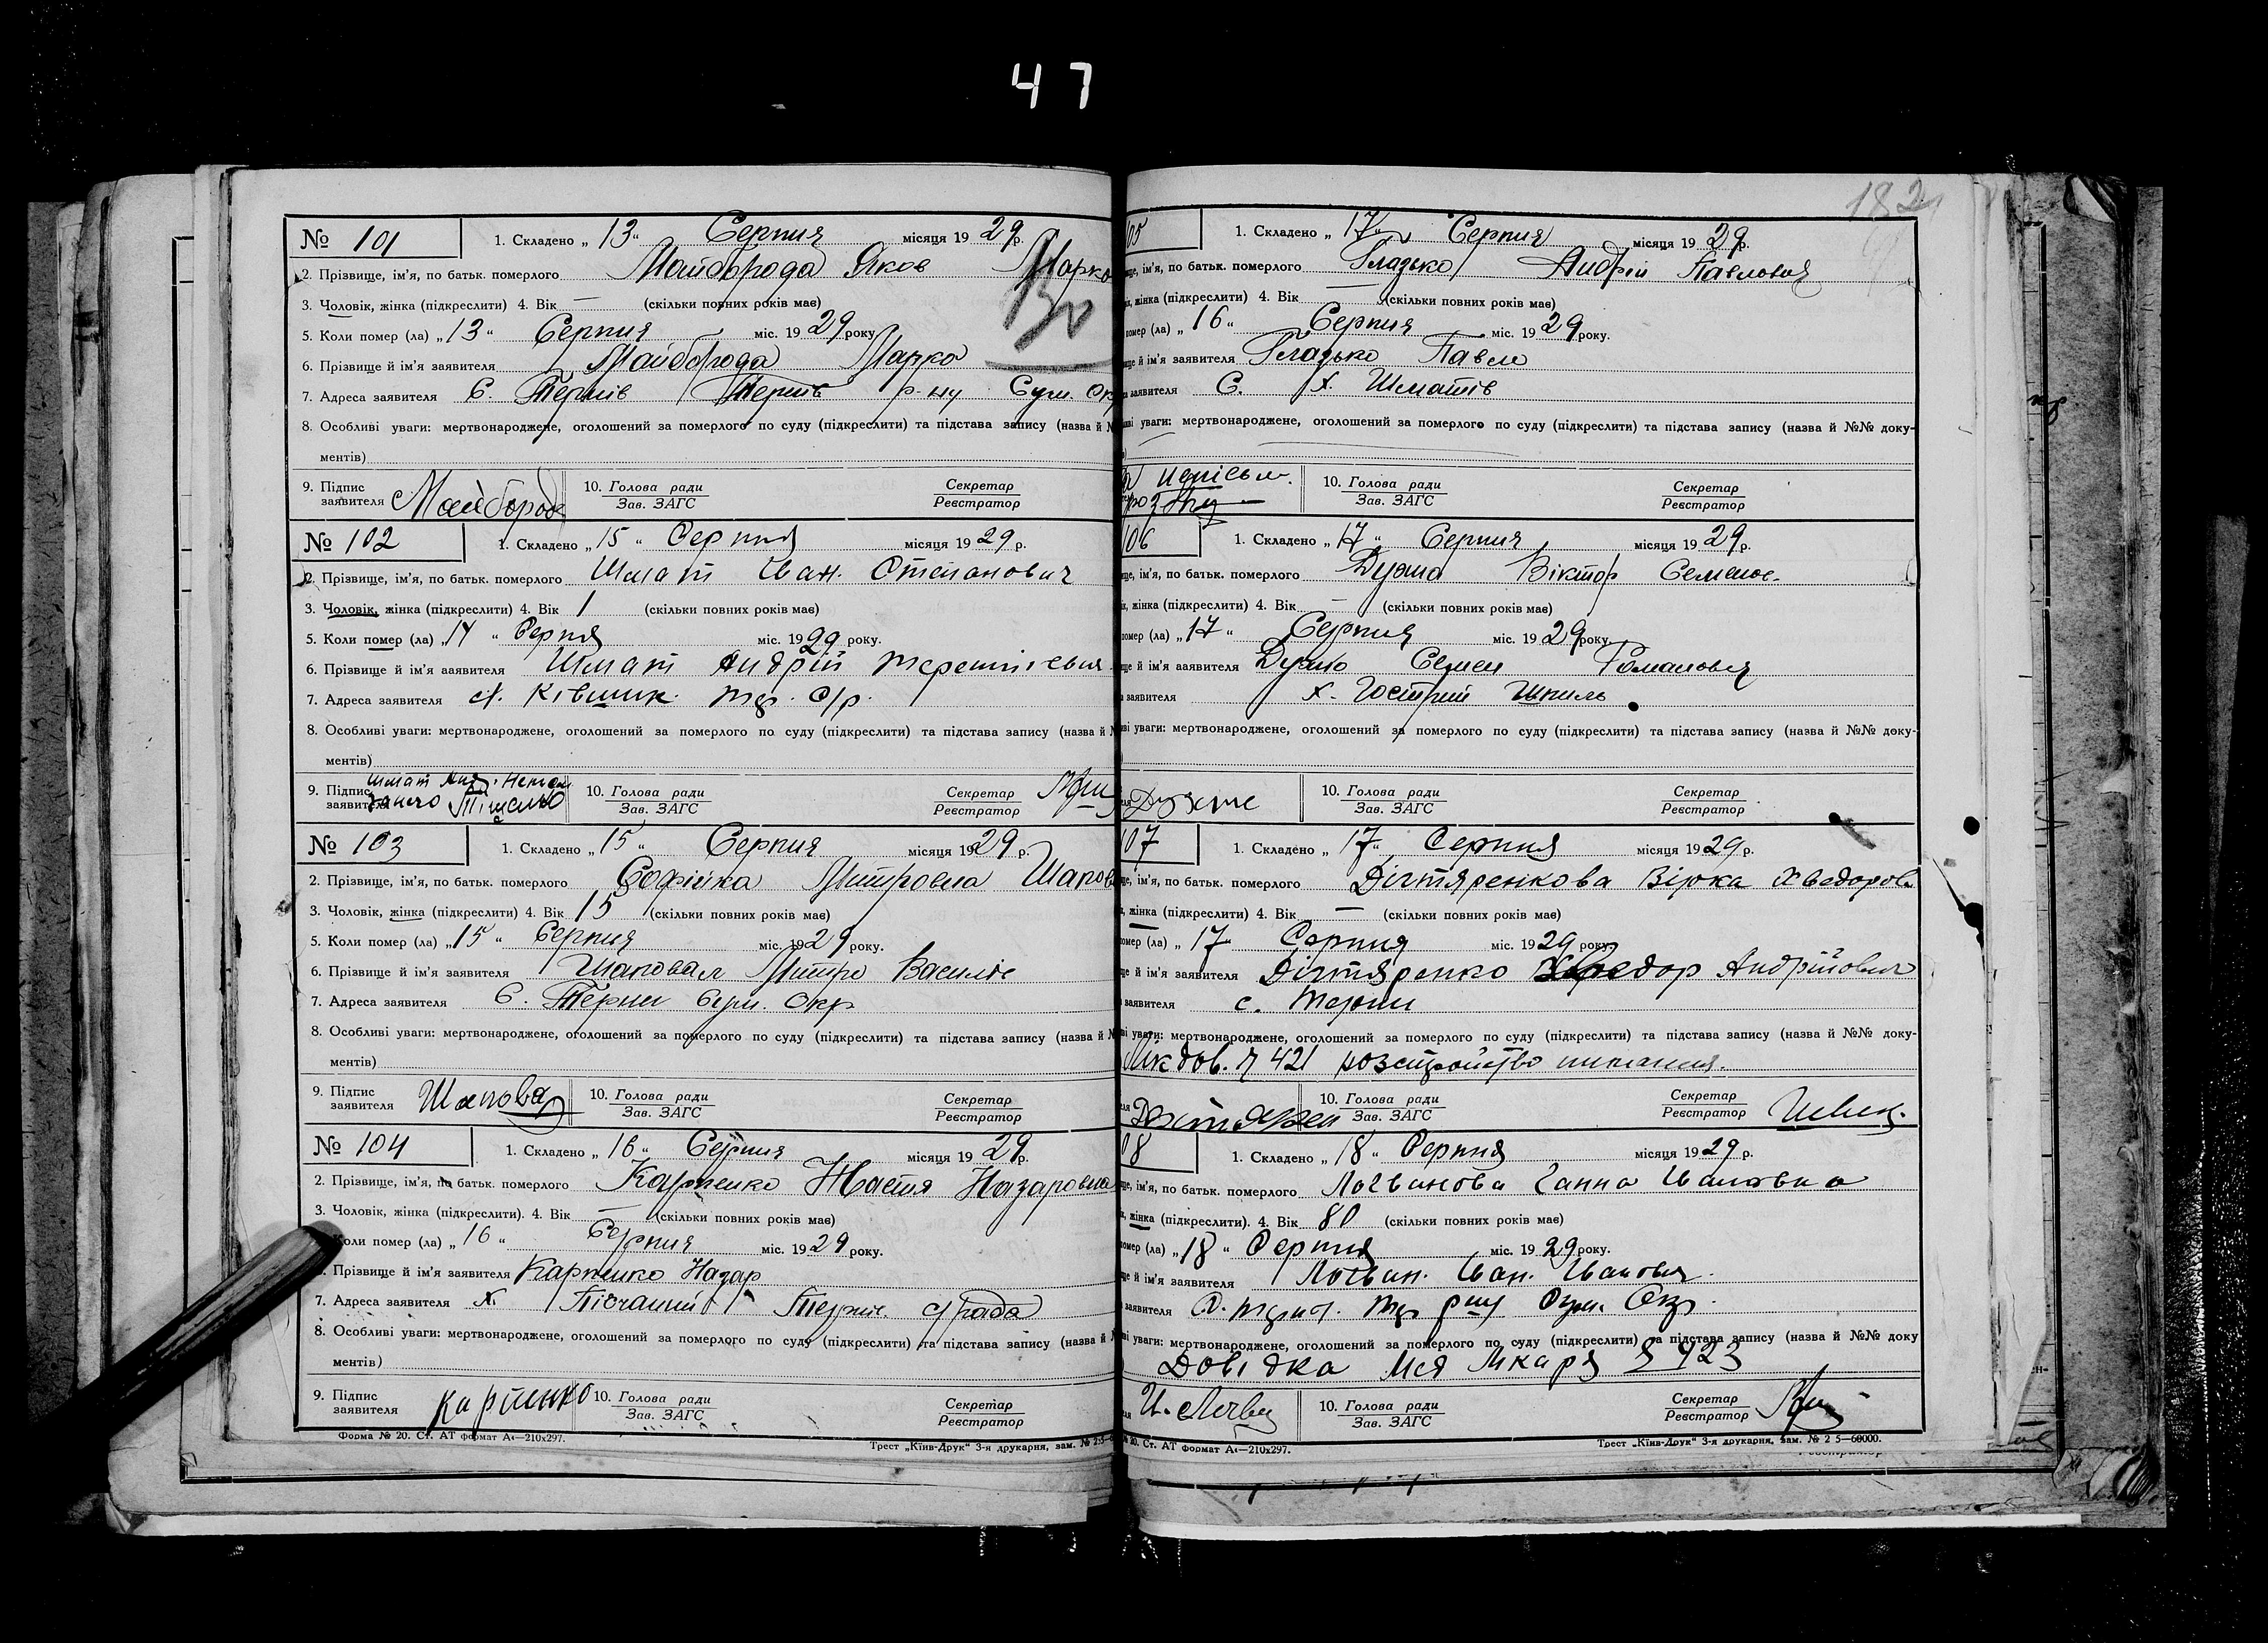 47
182
№ 101
1. Складено „ 13 “ Серпня місяця 1929 р.
2. Прізвище, ім'я, по батьк. померлого Майборода Яков Марко
3. Чоловік, жінка (підкреслити) 4. Вік — (скільки повних років має)
130
5. Коли помер (ла) „ 13 “ Серпня міс. 1929 року
6. Прізвище й ім'я заявителя Майборода Марко
7. Адреса заявителя С. Р-ну Сум. Ок
8. Особливі уваги: мертвонароджене, оголошений за померлого по суду (підкреслити) та підстава запису (назва й №
ментів)
9. Підпис заявителя Майборода 10. Голова ради Секретар
Зав. ЗАГС Реєстратор
№ 102
1. Складено „ 15 “ Серпня місяця 1929 р.
2. Прізвище, ім'я, по батьк. померлого Шмат Іван. Степанович
3. Чоловік, жінка (підкреслити) 4. Вік 1 (скільки повних років має)
5. Коли помер (ла) „ 14 “ Серпня міс. 1929 року.
6. Прізвище й ім'я заявителя Шмат Андрій
7. Адреса заявителя с/р.
8. Особливі уваги: мертвонароджене, оголошений за померлого по суду (підкреслити) та підстава запису (назва й №
ментів)
9. Підпис заявителя Шмат Анд. 10. Голова ради Секретар
Зав. ЗАГС Реєстратор
№ 103
1. Складено „ 15 “ Серпня місяця 1929 р.
2. Прізвище, ім'я, по батьк. померлого Софійка Митровна Шапов
3. Чоловік, жінка (підкреслити) 4. Вік 15 (скільки повних років має)
5. Коли помер (ла) „ 15 “ Серпня міс. 1929 року.
6. Прізвище й ім'я заявителя Шаповал Митро Василіє
7. Адреса заявителя С. Терни Сум. Окр
8. Особливі уваги: мертвонароджене, оголошений за померлого по суду (підкреслити) та підстава запису (назва й №
ментів)
9. Підпис заявителя Шаповал 10. Голова ради Секретар
Зав. ЗАГС Реєстратор
№ 104
1. Складено „ 16 “ Серпня місяця 1929 р.
2. Прізвище, ім'я, по батьк. померлого Карпенко Настя Назаровна
3. Чоловік, жінка (підкреслити). 4. Вік — (скільки повних років має)
Коли помер (ла) „ 16 “ Серпня міс. 1929 року.
Прізвище й ім'я заявителя Карпенко Назар
7. Адреса заявителя х. Пісчаний с/рада
8. Особливі уваги: мертвонароджене, оголошений за померлого по суду (підкреслити) та підстава запису (назва й №
ментів)
9. Підпис заявителя Карпенко 10. Голова ради Секретар
Зав. ЗАГС Реєстратор
Форма № 20. Ст. АТ формат А4—210x297. Трест „Київ-Друк“ 3-я друкарня, зам. №
05
1. Складено „ 17 “ Серпня місяця 1929 р.
ще, ім'я, по батьк. померлого Гладько Андрій Павлович
жінка (підкреслити) 4. Вік — (скільки повних років має)
помер (ла) „ 16 “ Серпня міс. 1929 року.
ще й ім'я заявителя Гладько Павло
заявителя С. х. Шматів
уваги: мертвонароджене, оголошений за померлого по суду (підкреслити) та підстава запису (назва й №№ доку-
10. Голова ради Секретар
Зав. ЗАГС Реєстратор
106
1. Складено „ 17 “ Серпня місяця 1929 р.
ще, ім'я, по батьк. померлого Дузно Віктор Семенов.
жінка (підкреслити) 4. Вік — (скільки повних років має)
помер (ла) „ 17 “ Серпня міс. 1929 року.
ще й ім'я заявителя Семен Романович
заявителя х. Гострий Шпиль
уваги: мертвонароджене, оголошений за померлого по суду (підкреслити) та підстава запису (назва й №№ доку-
10. Голова ради Секретар
Зав. ЗАГС Реєстратор
07
1. Складено „ 17 “ Серпня місяця 1929 р.
ще, ім'я, по батьк. померлого Дігтяренкова Вірка Хведоров
жінка (підкреслити) 4. Вік — (скільки повних років має)
помер (ла) „ 17 “ Серпня міс. 1929 року
ще й ім'я заявителя Дігтяренко Хведор Андрійович
заявителя с. Терни
уваги: мертвонароджене, оголошений за померлого по суду (підкреслити) та підстава запису (назва й №№ доку-
Лік дов. № 421 розстройство питання.
10. Голова ради Секретар
Зав. ЗАГС Реєстратор
08
1. Складено „ 18 “ Серпня місяця 1929 р.
ще, ім'я, по батьк. померлого Логвинова Ганна Івановна
жінка (підкреслити). 4. Вік 80 (скільки повних років має)
помер (ла) „ 18 “ Серпня міс. 1929 року.
ще й ім'я заявителя Логвин. Іван. Іванович.
заявителя Сум. Окр.
уваги: мертвонароджене, оголошений за померлого по суду (підкреслити) та підстава запису (назва й №№ доку
Довідка Лікаря № 423
10. Голова ради Секретар
Зав. ЗАГС Реєстратор
№ 20. Ст. АТ формат А4—210x297. Трест „Київ-Друк“ 3-я друкарня, зам. № 2 5—60000.